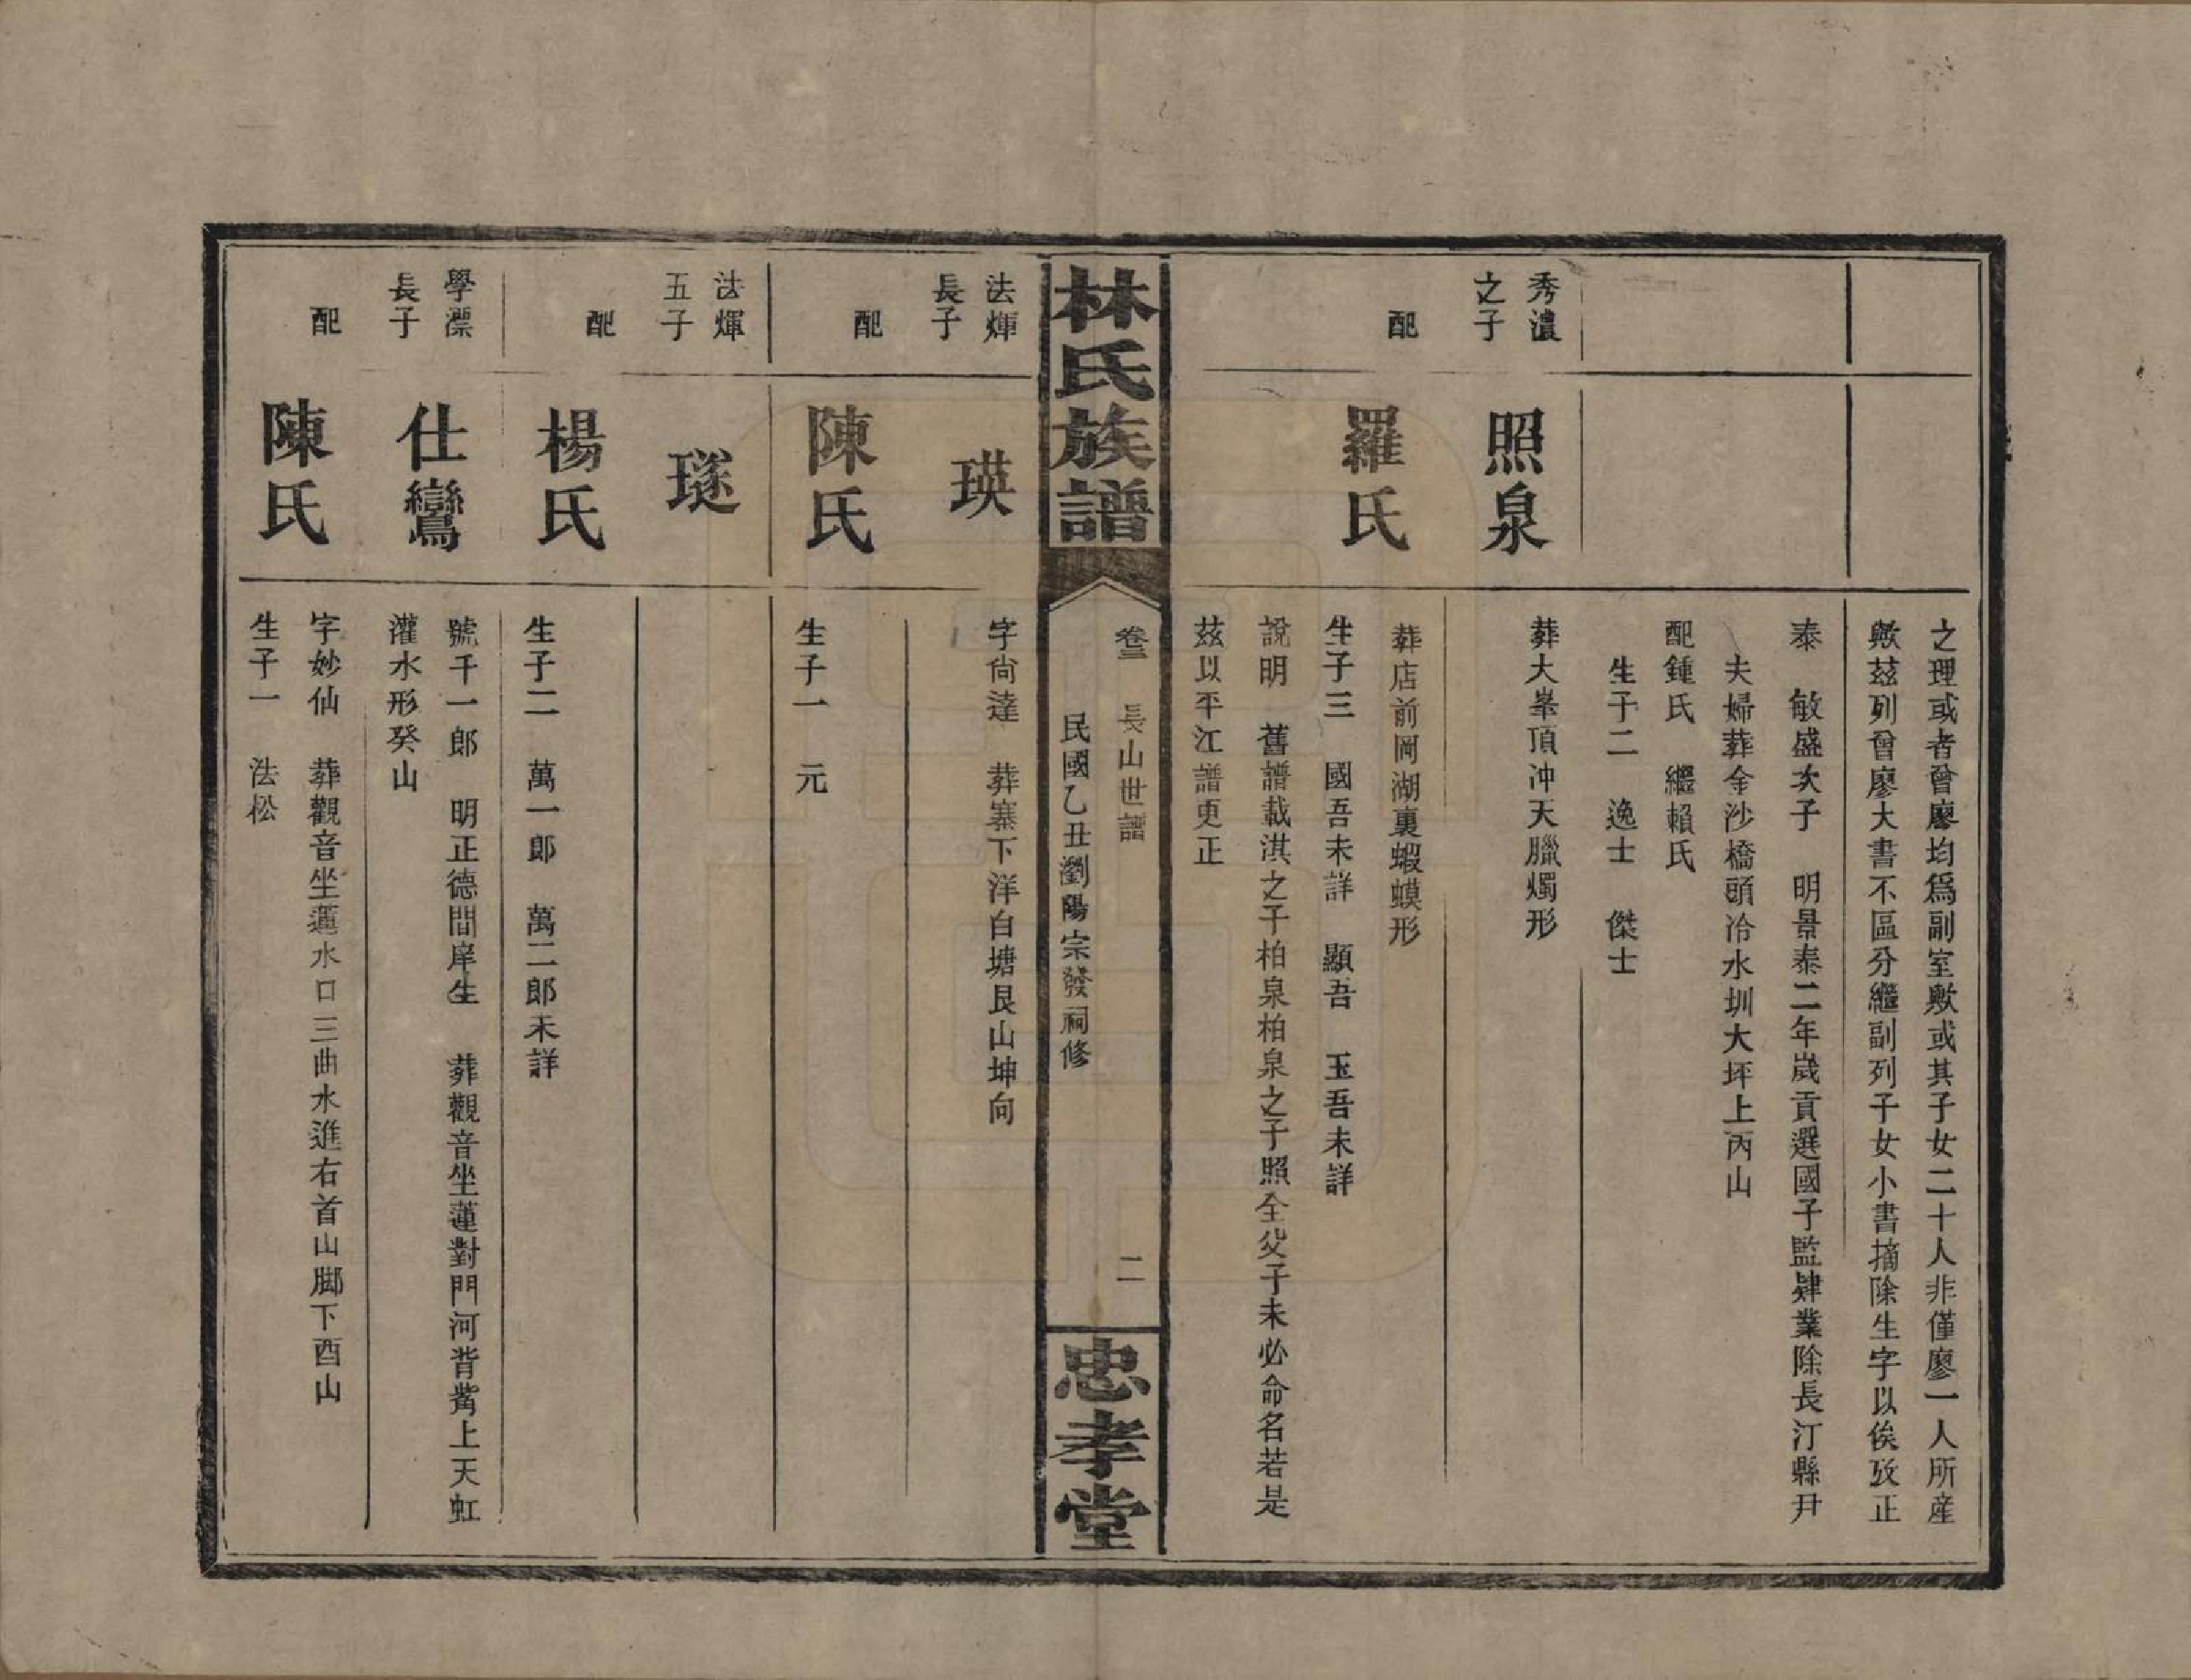 之理或者曾廖均爲副室歟或其子女二十人非僅廖一人所産
歟茲列曾廖大書不區分繼副列子女小書摘除生字以俟攷正
泰　敏盛次子　明景泰二年歲貢選國子監肄業除長汀縣尹
夫婦葬金沙橋頭冷水圳大坪上丙山
配鍾氏　繼賴氏
生子二　逸士　傑士
秀濃
之子
照泉
葬大峯頂冲天臘燭形
配
羅氏
葬店前岡湖裏蝦蟆形
生子三　國吾未詳　顯吾　玉吾未詳
說明　舊譜載淇之子柏泉柏泉之子照全父子未必命名若是
茲以平江譜更正
林氏族譜
卷三　長山世譜　二
民國乙丑瀏陽宗發祠修
忠孝堂
法煇
長子
瑛
字尙達　葬寨下洋白塘艮山坤向
配
陳氏
生子一　元
法煇
五子
璲
配
楊氏
生子二　萬一郎　萬二郎未詳
學漂
長子
仕鸞
號千一郎　明正德間庠生　葬觀音坐蓮對門河背嘴上天虹
灌水形癸山
配
陳氏
字妙仙　葬觀音坐蓮水口三曲水進右首山脚下酉山
生子一　法松